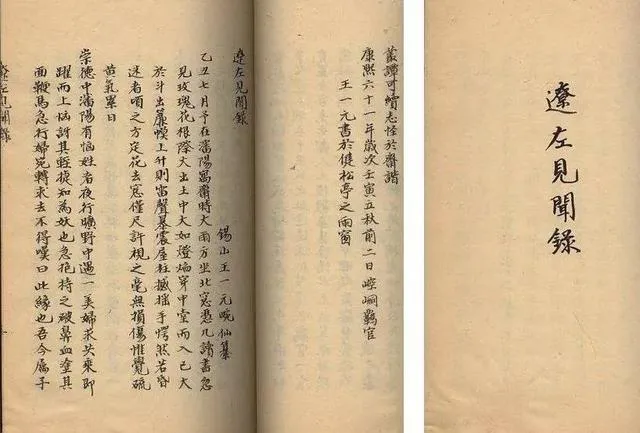 遼左見聞錄
叢譚可續志怪於齊諧
康熙六十一年歲次壬寅立秋前二日崆峒鷃官
王一元書於健松亭之雨窗
遼左見聞錄
錫山王一元畹仙纂
乙丑七月予在瀋陽寓齋時大雨方坐北窓憑几讀書忽
見玫瑰花根際火出土中大如燈焔穿中堂而入已大
於斗出簾幙上升則雷聲暴震屋柱撼搖予愕然若昏
迷者頃之方定花去窓僅尺許視之毫無損傷惟覺硫
黃氣累日
崇德中瀋陽有惱姓者夜行曠野中遇一美婦求共乘即
躍而上惱訝其輕捷知為妖也急抱持之破鼻血塗其
面鞭馬急行婦宛轉求去不得嘆曰此緣也吾今屬子
遼左見聞錄